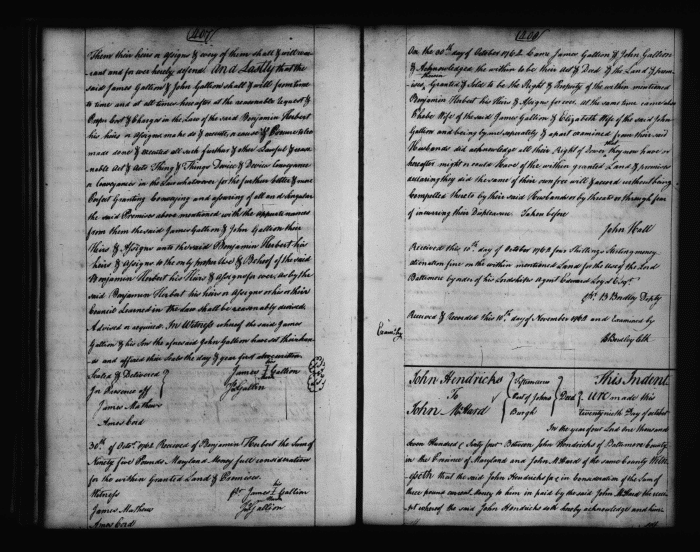 (407)
Them their heirs or assigns & every of them shall & will war
rant and for ever hereby defend And Lastly that the
said James Gallion & John Gallion shall & will from time
to time and at all times hereafter at the reasonable request &
Proper Cost & Charges in the Law of the said Benjamin Herbert
his heirs or assigns make do & execute, or cause & Procure to be
made done & executed all such further & other Lawful & reason
able Act & Acts Thing & Things Device & Devices Conveyance
or Conveyances in the Law whatsoever for the further better & more
Perfect Granting Conveying and assuring of all and singular
the said Premises above mentioned with the appurtenances
from them the said James Gallion & John Gallion their
Heirs & Assigns unto the said Benjamin Herbert his
heirs & assigns to the only proper Use & Behoof of the said
Benjamin Herbert his Heirs & Assigns for ever, as by the
said Benjamin Herbert his heirs or assigns or his or their
Council Learned in the Law shall be reasonably devised
Advised or required. In Witness whereof the said James
Gallion & his Son the aforesaid John Gallion have set their hands
and affixed their Seals the day & year first above written
Sealed & Delivered James Gallion
In Presence off Jno Gallion
James Mathews
Amos Cord
30th of Octor. 1762 Received of Benjamin Herbert the Sum of
Ninety five Pounds Maryland Money full consideration
for the within Granted Land & Premises
Witness pr. James Gallion
James Mathews Jno Gallion
Amos Cord
(408)
On the 30th day of October 1762 Came James Gallion & John Gallion
& Acknowledged the within to be their Act & Deed & the Land & prem
ises, therein Granted & Sold to be the Right & Property of the within mentioned
Benjamin Herbert his Heirs & Assigns for ever. At the same time came also
Phebe Wife of the said James Gallion & Elizabeth Wife of the said John
Gallion and being by me separately & apart examined from their said
Husbands did acknowledge all their Right of Dower that they now have or
hereafter might or could Have of the within granted Land & premises
declaring they did the same of their own free will & accord without being
Compelled thereto by their said Husbands or by threats or through fear
of incurring their Displeasure. Taken before
John Hall
Received this 10th day of October 1762 four Shillings Sterling money
alienation fine on the within mentioned Land for the use of the Lord
Baltimore by order of his Lordships Agent Edward Loyd Esqr.
pr. B Bradley Depty
Received & Recorded this 10th day of November 1762 and Examined by
B Bordley Clk
Exam'd by
John Hendricks
To
John McHard
Deed
This Indent
ure made this
twenty ninth Day of october
In the year of our Lord one thousand
seven Hundred & Sixty two Between John Hendricks of Baltimore County
in the Province of Maryland and John McHard of the same County Witn
esseth that the said John Hendricks for & in Consideration of the Sum of
three pounds current Money to him in paid by the said John McHard the recei
pt whereof the said John Hendricks doth hereby acknowledge and him